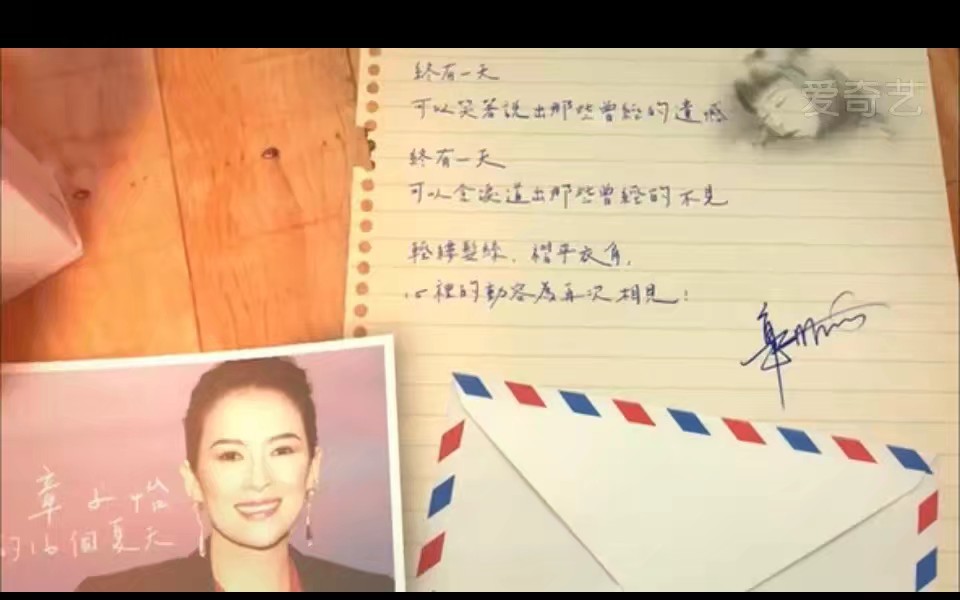 爱奇艺
終有一天
可以笑著說出那些曾經的遺憾
終有一天
可以含淚道出那些曾經的不見
輕縷髮絲,褶平衣角,
心裡的動容為再次相見!
章子怡
的16個夏天